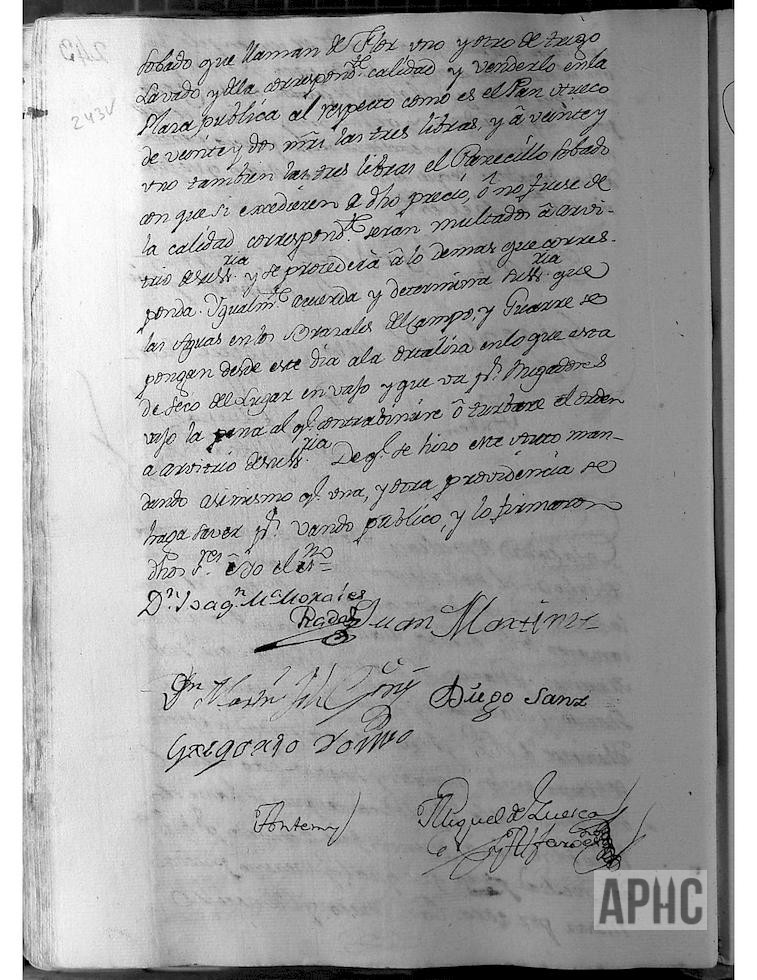 243v
sobado que llaman de Flor uno y otro de trigo
Lavado y dela correspondte. calidad y venderlo enla
Plaza publica al respecto como es el Pan
de veinte y dos mrs. las tres libras, y â veinte y
uno tambien las tres libras el Panecillo sobado
con que si excedieren a dho precio, ô no fuese de
la calidad correspondte. serán multados â arvi-
trio desusria. y se procederá â lo demas que corres-
ponda. Ygualmte. acuerda y determina susria. que
las Aguas en los Brazales del Campo, y Guerre se
pongan desde este dia ala ortaliza enlo que esta
de seco del Lugar en vajo y que va pr. Brigadores
vajo la pena al q. contrabinire ô turbare el orden
a arvitrio desusria. De q. se hizo este auto man-
dando asimismo q. una, y otra providencia se
haga saver pr. vando publico, y lo firmaron
dhos sres. ê Yo el essno
Dn. Joaqn. Ma. Morales
Rada Juan Martinez
Dn Martn Gil Goñi Diego Sanz
Gregorio
Antemy
Miguel de Zuesca
y Alfaro
APHC